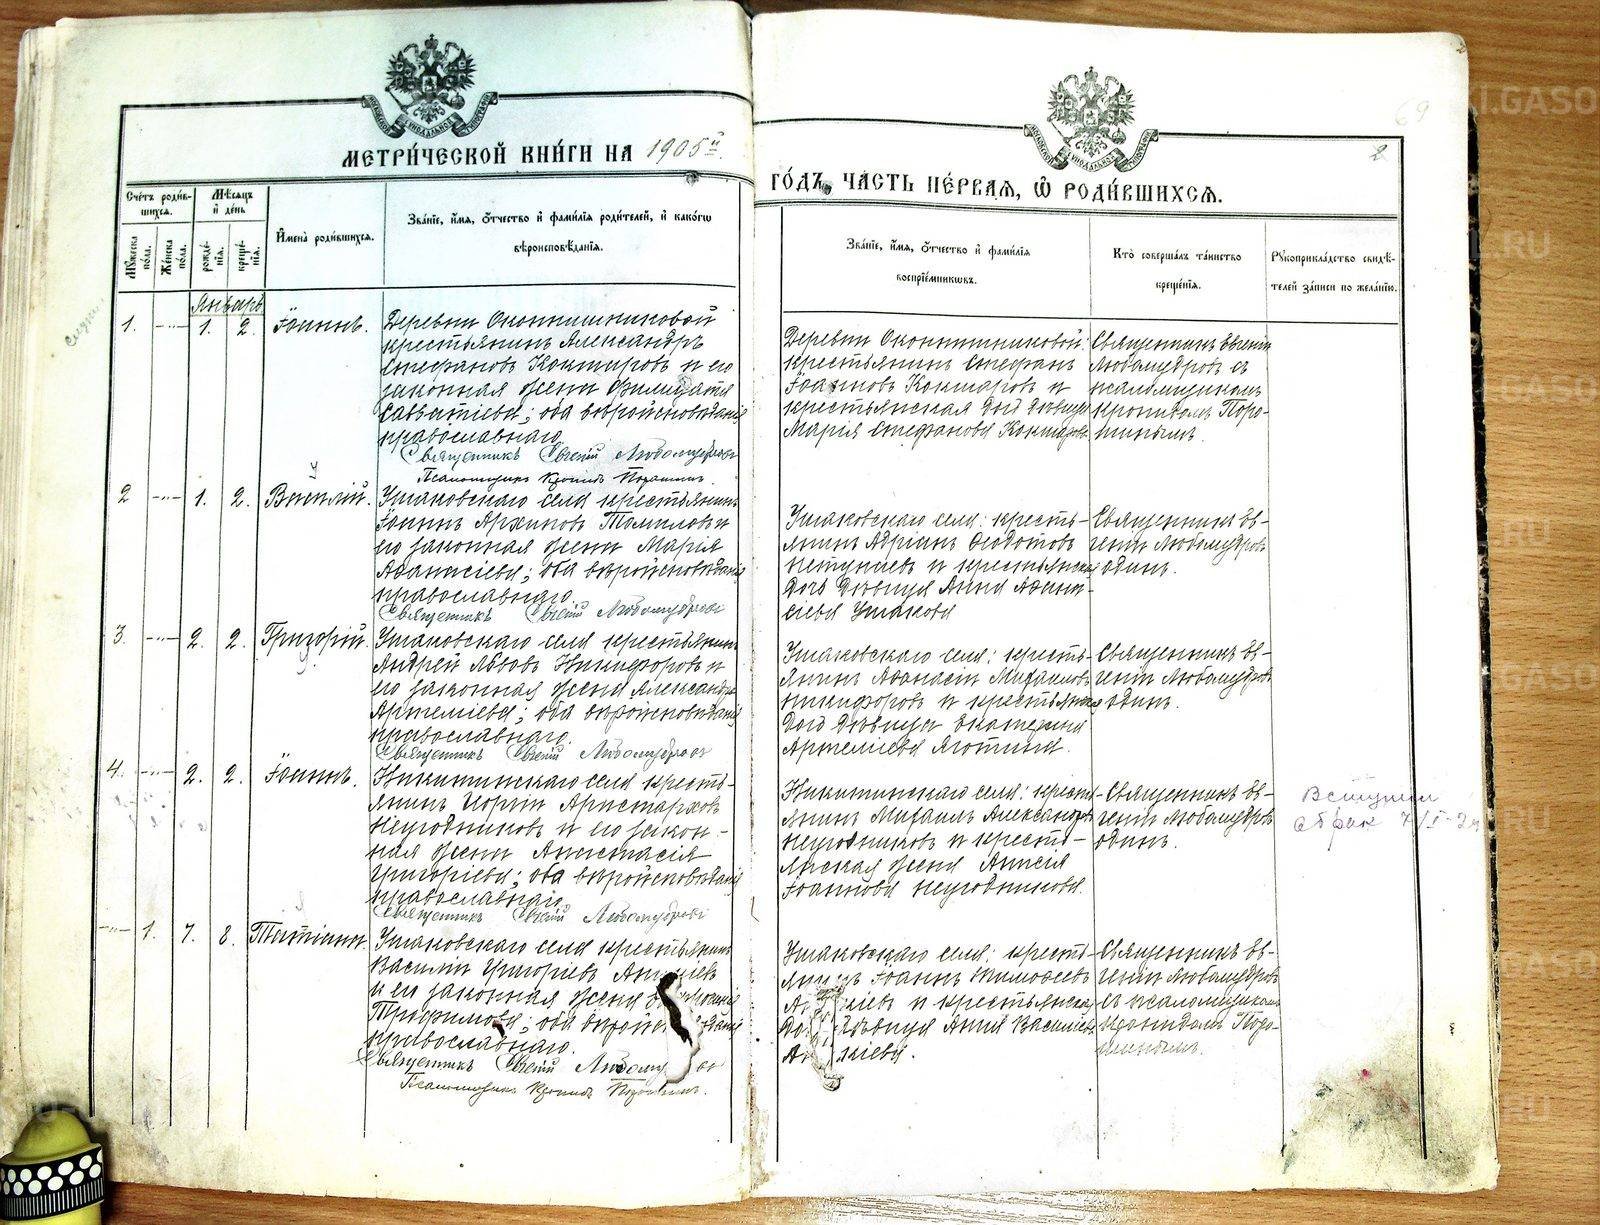 МЕТРИ́ЧЕСКОЙ КНИ́ГИ НА 1905й
ГО́ДЪ, ЧА́СТЬ ПЕ́РВАЯ, Ѡ РОДИ́ВШИХСЯ.
69
2
Сче́тъ роди́в-
шихся.
Му́жеска по́ла.
Же́нска по́ла.
Мѣ́сяцъ и де́нь
рожде́-
нія.
креще́-
нія.
Имена̀ роди́вшихся.
Зва́ніе, и́мя, ѻ́тчество и фами́лія роди́телей, и како́гѡ
вѣроисповѣ́данія.
Зва́ніе, и́мя, ѻ́тчество и фами́лія
воспріе́мникѡвъ.
Кто̀ соверша́лъ та́инство
креще́нія.
Рукоприкла́дство свидѣ́-
телей за́писи по жела́нію.
Январь
1. -"- 1. 2. Іоаннъ.
Деревни Оконтишниковой
крестьянинъ Александръ
Стефановъ Кокшаровъ и его
законная жена Филицата
Савватіева; оба вѣроисповѣданія
православнаго.
Священникъ Евгеній Любомудровъ
Псаломщикъ Кронидъ Порошинъ.
Деревни Оконтишниковой:
крестьянинъ Стефанъ
Іоанновъ Кокшаровъ и
крестьянская дочь дѣвица
Марія Стефанова Кокшарова
Священникъ Евгеній
Любомудровъ съ
псаломщикомъ
Кронидомъ Поро-
шинымъ.
2 -"- 1. 2. Василій.
Ушаковскаго села крестьянинъ
Іоаннъ Архиповъ Томиловъ и
его законная жена Марія
Аѳанасіева; оба вѣроисповѣданія
православнаго.
Священникъ Евгеній Любомудровъ
Ушаковскаго села: кресть-
янинъ Адріанъ Ѳедотовъ
и крестьянская
дочь дѣвица Анна Аѳана-
сіева Ушакова
Священникъ Ев-
геній Любомудровъ
одинъ.
3. -"- 2. 2. Григорій.
Ушаковскаго села крестьянинъ
Андрей Львовъ Никифоровъ и
его законная жена Александра
Артеміева; оба вѣроисповѣданія
православнаго.
Священникъ Евгеній Любомудровъ
Ушаковскаго села: кресть-
янинъ Аѳанасій Михаиловъ
Никифоровъ и крестьянская
дочь дѣвица Екатерина
Артеміева Яготина.
Священникъ Ев-
геній Любомудровъ
одинъ.
4. -"- 2. 2. Іоаннъ.
Никитинскаго села кресть-
янинъ Іоргій Аристарховъ
Неугодниковъ и его закон-
ная жена Анастасія
Григоріева; оба вѣроисповѣданія
православнаго.
Священникъ Евгеній Любомудровъ
Никитинскаго села: кресть-
янинъ Михаилъ Александровъ
Неугодниковъ и кресть-
янская жена Анисія
Іоаннова Неугодникова.
Священникъ Ев-
геній Любомудровъ
одинъ.
Вступил
в брак 7/I-
-"- 1. 7. 8. Татіана.
Ушаковскаго села крестьянинъ
Василій Григоріевъ
и его законная жена
Трофимова; оба
православнаго.
Священникъ Евгеній
Псаломщикъ Кронидъ Порошинъ.
Ушаковскаго села: кресть-
янинъ Іоаннъ Тимоѳеевъ
и крестьянская
дѣвица Анна Василіева
Священникъ Ев-
геній Любомудровъ
съ псаломщикомъ
Кронидомъ Поро-
шинымъ.